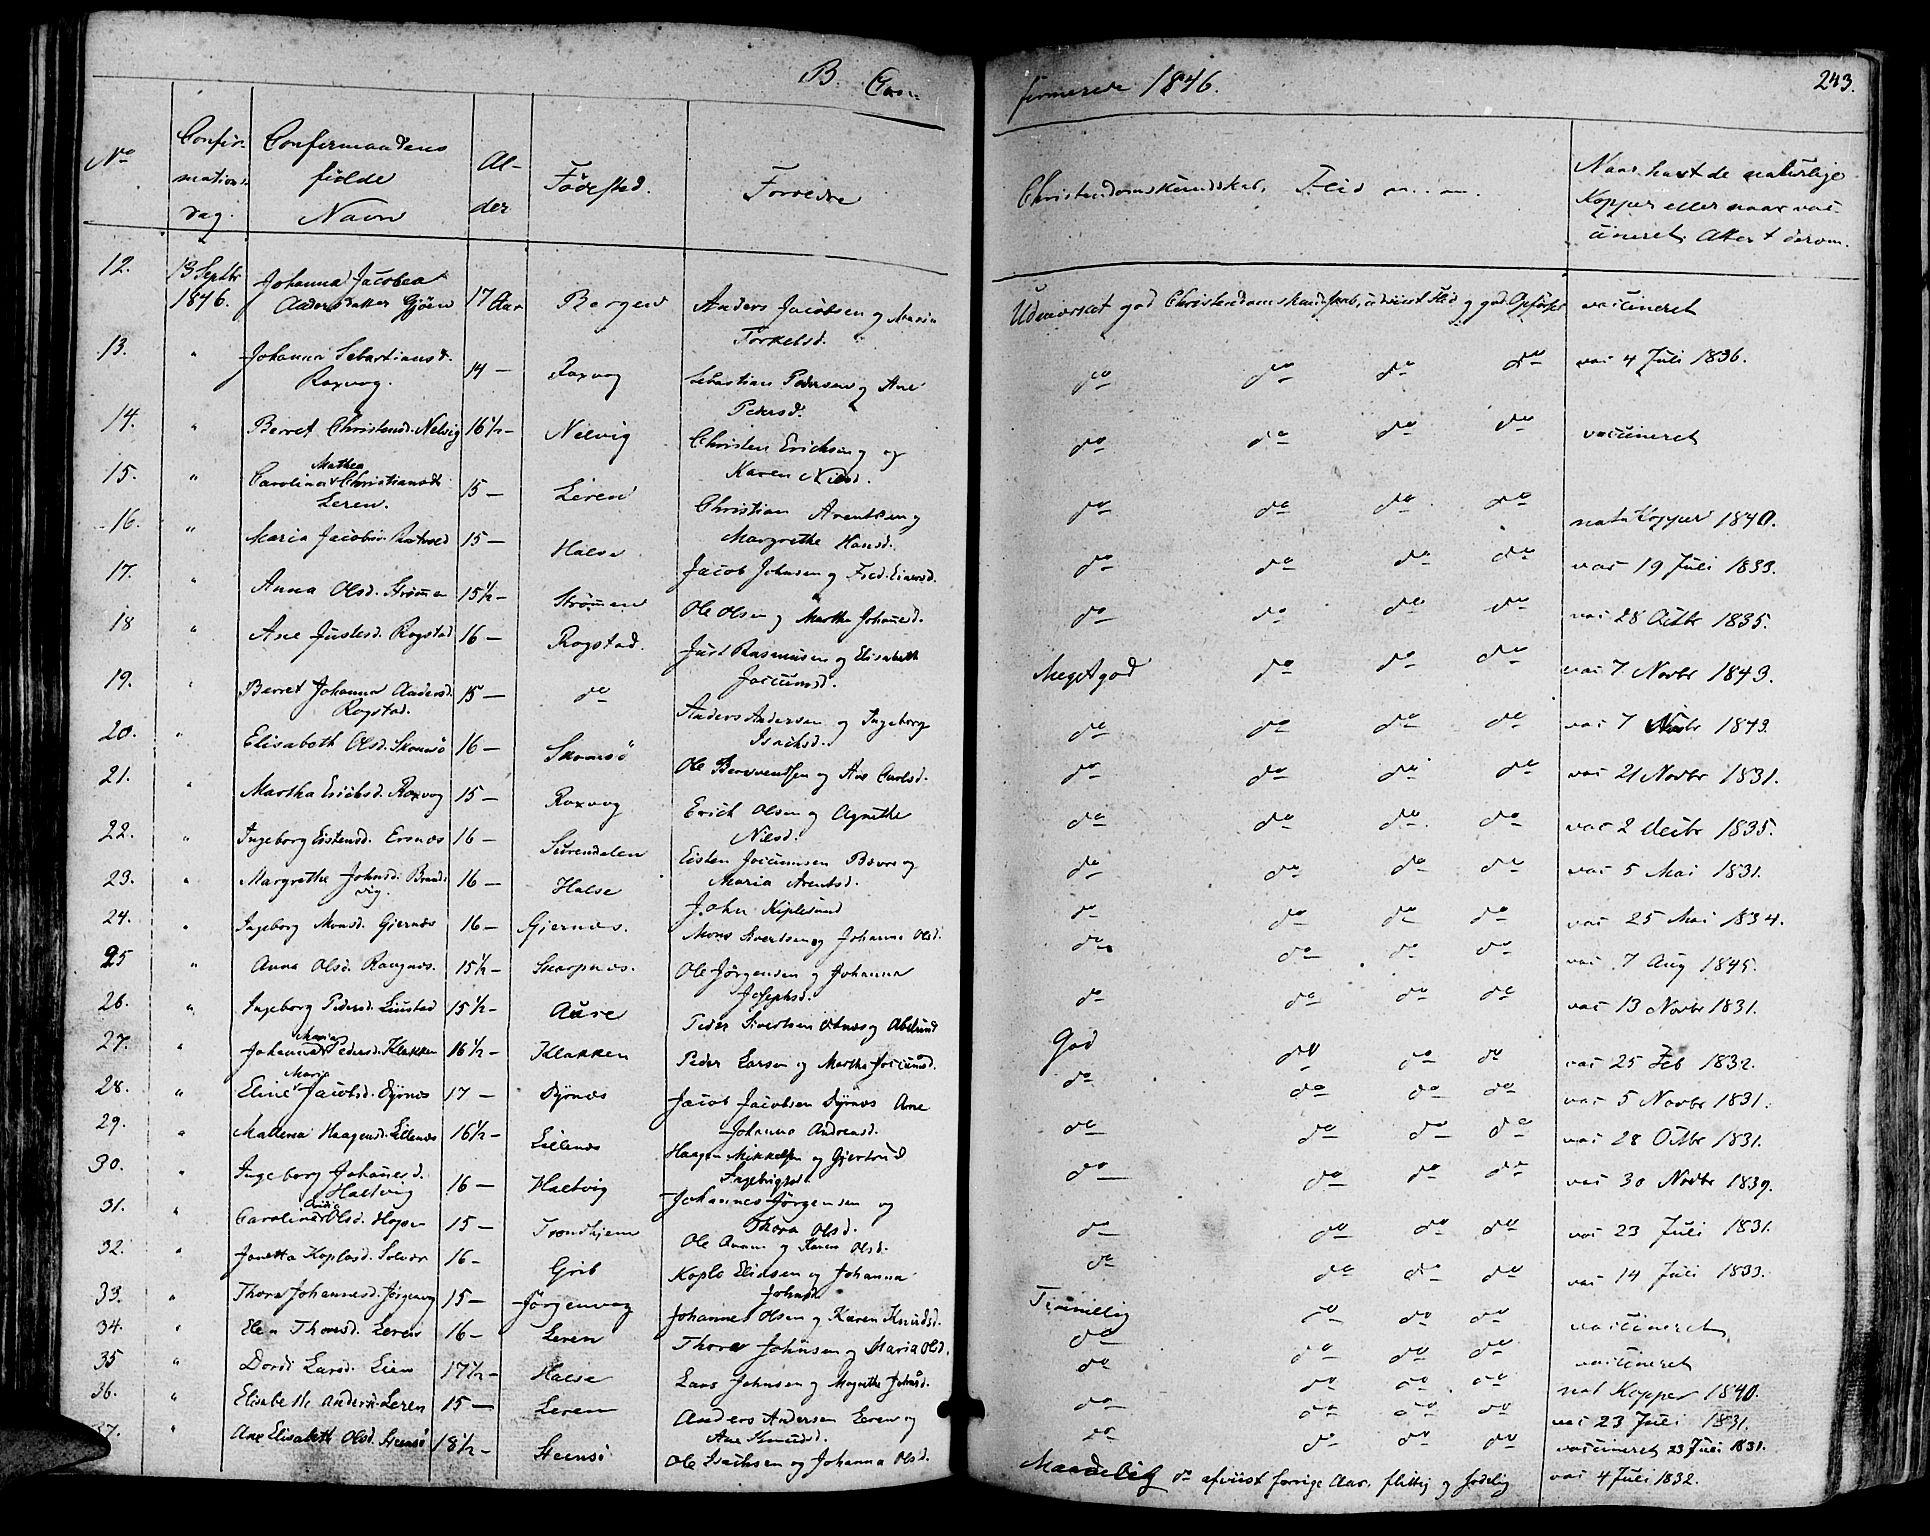 B. Con-
firmerede 1846.
243.
No
Confir-
mations-
dag.
Confirmandens
fulde
Navn
Al-
der
Fødested.
Forældre
Christendomskundskab, Flid
Naar havt de naturlige
Kopper eller naar vac-
cineret. Attest derom.
12. 13 Septbr 1846. Johanna Jacobea
Andersdatter Gjøen 17 Aar Bergen Anders Jacobsen og Maria
Torkelsd. Udmærket god Christendomskundskab, udviist Flid og god Opførsel vaccineret
13. " Johanna Sebastiansd.
Roxvog. 14 — Roxvog Sebastian Pedersen og Ane
Pedersd. do do do do vac 4 Juli 1836.
14. " Berret Christensd. Nelvig 16½ — Nelvig Christen Erichsen og
Karen Nilsd. do do do do vaccineret
15. " Carolina Mathea Christiansdt
Leren. 15 — Leren Christian Arentsen og
Margrethe Hansd. do do do do nat. Kopper 1840.
16. " Maria Jacobs. 15 — Halse Jacob Johnsen og do do do do vac 19 Juli 1833.
17. " Anna Olsd. Strømen 15½ — Strømen Ole Olsen og Martha Johansd. do do do do vac 28 Octbr 1835.
18 " Ane Justesd. Rogstad 16 — Rogstad. Just Rasmusen og Elisabeth
Jocumsd. Meget god do do do vac 7 Novbr 1843.
19. " Berret Johanna Andersd.
Rogstad. 15 — do Anders Andersen og Ingeborg
Isachsd. do do do do vac 7 Novbr 1843.
20. " Elisabeth Olsd. Skomsø 16 — Skomsø Ole Berventsen og Ane Carlsd. do do do do vac 21 Novbr 1831.
21. " Martha Erichsd. Roxvog 15 — Roxvog Erich Olsen og Agnethe
Nilsd. do do do do vac 2 Decbr 1835.
22. " Ingeborg Eistensd. Ersnæs 16 — Surendalen Eisten Jocumsen Bævre og
Maria Arentsd. do do do do vac 5 Mai 1831.
23. " Margrethe Johnsd. Brand-
vig. 16 — Halse John do do do do vac 25 Mai 1834.
24. " Ingeborg Monsd. Gjernæs 16 — Gjernæs. Mons Sivertsen og Johanna Olsd. do do do do vac 7 Aug 1845.
25 " Anna Olsd. Rangnæs. 15½ — Skarpnæs. Ole Jørgensen og Johanna
Josephsd. do do do do vac 13 Novbr 1831.
26. " Ingeborg Pedersd. Liustad 15½ — Aure Peder Sivertsen God do do do vac 25 Feb 1832.
27. " Johanna Maria Pedersd. Klakken 16½ — Klakken Peder Larsen og Martha Jocumsd. do do do do vac 5 Novbr 1831.
28. " Eline Maria Jacobsd. Dyrnæs 17 — Dyrnæs Jacob Jacobsen Dyrnæs Ane
Johanna Andreasd. do do do do vac 28 Octbr 1831.
29. " Mallena Haagensd. Lillenæs 16½ — Lillenæs Haagen Mikkelsen og Gjertrud
Ingebrigtsd. do do do do vac 30 Novbr 1839.
30. " Ingeborg Johanesd.
Haltvig 16 — Haltvig Johannes Jørgensen og
Thora Olsd. do do do do vac 23 Juli 1831.
31. " Carolina Olsd. 15 — Trondhjem Ole og Karen Olsd. do do do do vac 14 Juli 1833.
32. " Jonetta Koplosd. 16 — Grib Koplo Eliasen og Johanna
Johnsd. Temmelig do do do vaccineret
33. " Thora Johannesd. Jørgenvog 15 — Jørgenvog Johannes Olsen og Karen Knudsd. do do do do vaccineret
34. " Elen Thoresd. Leren 16 — Leren Thore Johnsen og Maria Olsd. do do do do nat Kopper 1840.
35 " Dordi Larsd. Lien 17½ — Halse Lars Johnsen og Magrethe Johnsd. do do do do vac 23 Juli 1831.
36. " Elisabeth Andersd. Leren 15 — Leren Anders Andersen Leren og
Ane Knudsd. do do do do vaccineret 23 Juli 1831.
37. " Ane Elisabeth Olsd. Steensø 18½ — Steensø Ole Isachsen og Johanna Olsd. Maadelig do afviist forrige Aar, flittig og sædelig vac 4 Juli 1832.